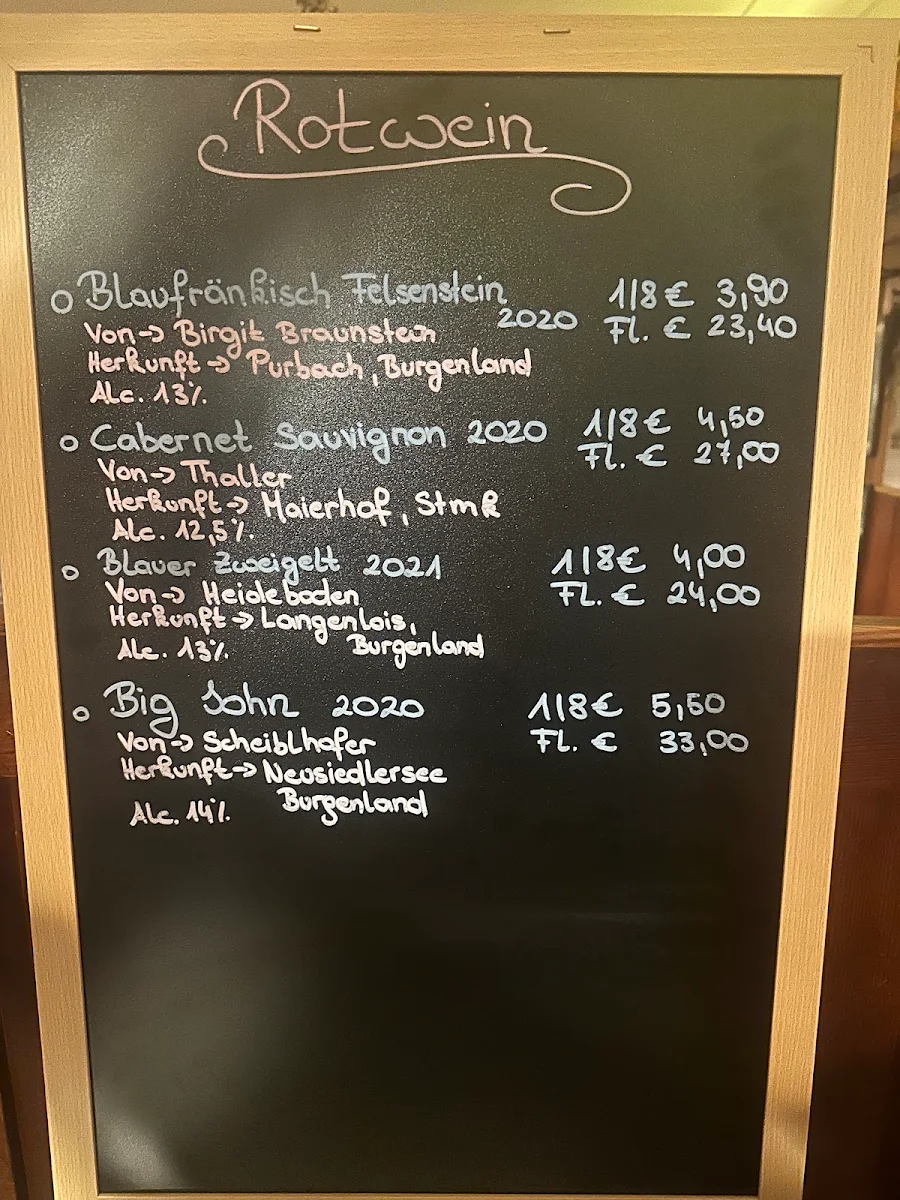 Rotwein
o Blaufränkisch Felsenstein 1/8 € 3,90
2020 Fl. € 23,40
Von -> Birgit Braunstein
Herkunft -> Purbach, Burgenland
Alc. 13%.
o Cabernet Sauvignon 2020 1/8 € 4,50
Fl. € 27,00
Von -> Thaller
Herkunft -> Maierhof, Stmk
Alc. 12,5%.
o Blauer Zweigelt 2021 1/8 € 4,00
Von -> Heideboden Fl. € 24,00
Herkunft -> Langenlois,
Alc. 13%. Burgenland
o Big John 2020 1/8 € 5,50
Von -> Scheiblhofer Fl. € 33,00
Herkunft -> Neusiedlersee
Alc. 14%. Burgenland